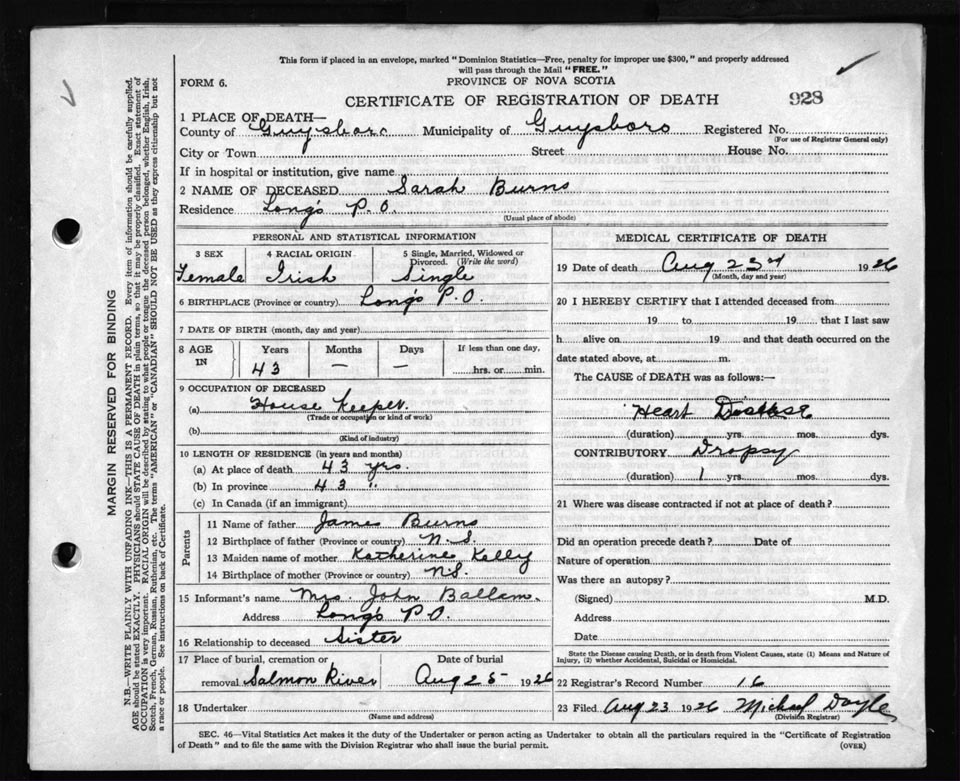 This form if placed in an envelope, marked "Dominion Statistics—Free, penalty for improper use $300," and properly addressed
will pass through the Mail "FREE."
FORM 6.
PROVINCE OF NOVA SCOTIA
CERTIFICATE OF REGISTRATION OF DEATH
928
1 PLACE OF DEATH—
County of Guysboro Municipality of Guysboro Registered No.
(For use of Registrar General only)
City or Town Street House No.
If in hospital or institution, give name
2 NAME OF DECEASED Sarah Burns
Residence Long's P.O.
(Usual place of abode)
PERSONAL AND STATISTICAL INFORMATION
3 SEX 4 RACIAL ORIGIN 5 Single, Married, Widowed or
Divorced. (Write the word)
Female Irish Single
6 BIRTHPLACE (Province or country) Long's P.O.
7 DATE OF BIRTH (month, day and year)
8 AGE IN Years Months Days If less than one day,
43 — — hrs. or min.
9 OCCUPATION OF DECEASED
(a) House Keeper
(Trade or occupation or kind of work)
(b)
(Kind of industry)
10 LENGTH OF RESIDENCE (in years and months)
(a) At place of death 43 yrs.
(b) In province 43 "
(c) In Canada (if an immigrant)
Parents
11 Name of father James Burns
12 Birthplace of father (Province or country) N.S.
13 Maiden name of mother Katherine Kelly
14 Birthplace of mother (Province or country) N.S.
15 Informant's name Mrs. John Ballem.
Address Long's P.O.
16 Relationship to deceased Sister
17 Place of burial, cremation or Date of burial
removal Salmon River Aug 25 1926
18 Undertaker
(Name and address)
MEDICAL CERTIFICATE OF DEATH
19 Date of death Aug 23rd 1926
(Month, day and year)
20 I HEREBY CERTIFY that I attended deceased from
19 to 19 that I last saw
h alive on 19 and that death occurred on the
date stated above, at m.
The CAUSE of DEATH was as follows:—
Heart
(duration) yrs. mos. dys.
CONTRIBUTORY Dropsy
(duration) 1 yrs. mos. dys.
21 Where was disease contracted if not at place of death?
Did an operation precede death? Date of
Nature of operation
Was there an autopsy?
(Signed) M.D.
Address
Date
State the Disease causing Death, or in death from Violent Causes, state (1) Means and Nature of
Injury, (2) whether Accidental, Suicidal or Homicidal.
22 Registrar's Record Number 16
23 Filed Aug 23 1926 Michael Doyle
(Division Registrar)
SEC. 46—Vital Statistics Act makes it the duty of the Undertaker or person acting as Undertaker to obtain all the particulars required in the "Certificate of Registration
of Death" and to file the same with the Division Registrar who shall issue the burial permit.
(OVER)
MARGIN RESERVED FOR BINDING
N.B.—WRITE PLAINLY WITH UNFADING INK—THIS IS A PERMANENT RECORD. Every item of information should be carefully supplied.
AGE should be stated EXACTLY. PHYSICIANS should STATE CAUSE OF DEATH in plain terms, so that it may be properly classified. Exact statement of
OCCUPATION is very important. RACIAL ORIGIN will be described by stating to what people or tongue the deceased person belonged, whether English, Irish,
Scotch, French, German, Russian, Ruthenian, etc. The terms "AMERICAN" or "CANADIAN" SHOULD NOT BE USED as they express citizenship but not
a race or people. See instructions on back of Certificate.